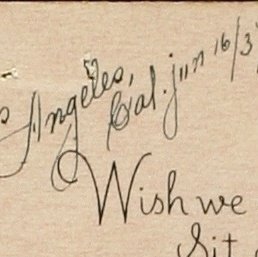 Angeles, Cal. jun 16/3
Wish we
Sit